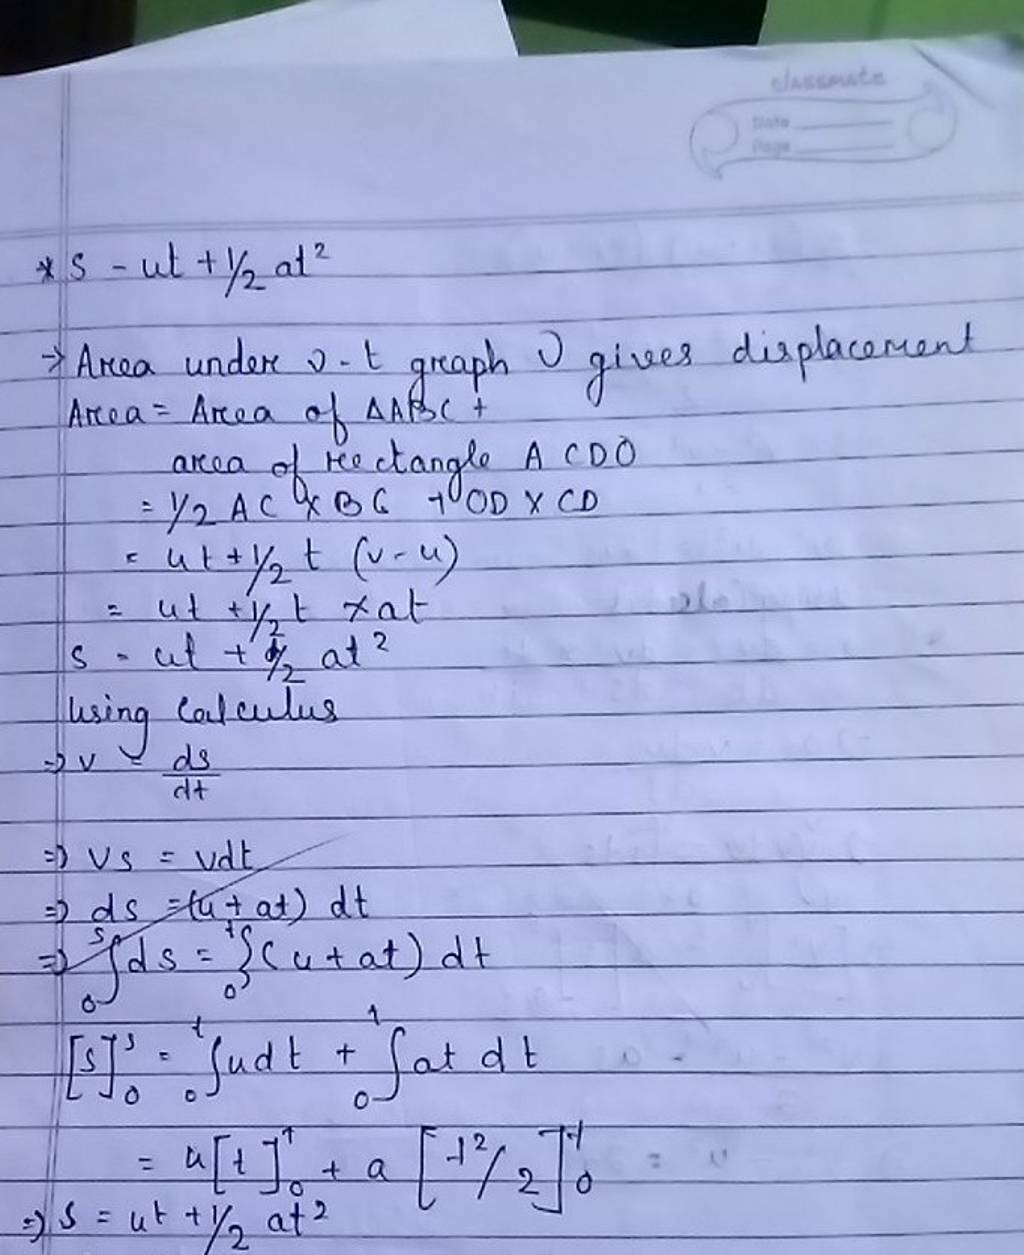 classmate
Date
Page
* s - ut + 1/2 at²
→ Area under v-t graph gives displacement
Area = Area of ΔABC +
area of rectangle ACDO
= 1/2 AC × BC + OD × CD
= ut + 1/2 t (v - u)
= ut + 1/2 t × at
s - ut + 1/2 at²
Using Calculus
⇒ v = ds/dt
⇒ vs = vdt
⇒ ds = (u + at) dt
⇒ ₀∫ˢ ds = ₀∫ᵗ (u + at) dt
[s]ˢ₀ = ₀∫ᵗ u dt + ₀∫ᵗ at dt
= u[t]ᵗ₀ + a [t²/2]ᵗ₀
⇒ s = ut + 1/2 at²